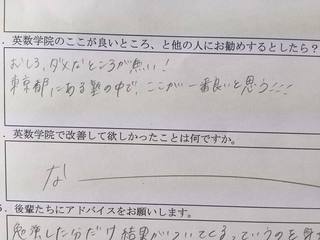 ．英数学院のここが良いところ、と他の人にお勧めするとしたら？
むしろ、ダメなところが無い！
東京都にある塾の中で、ここが一番良いと思う!!!
．英数学院で改善して欲しかったことは何ですか。
な
5．後輩たちにアドバイスをお願いします。
勉強した分だけ結果がついてくるっていうのを